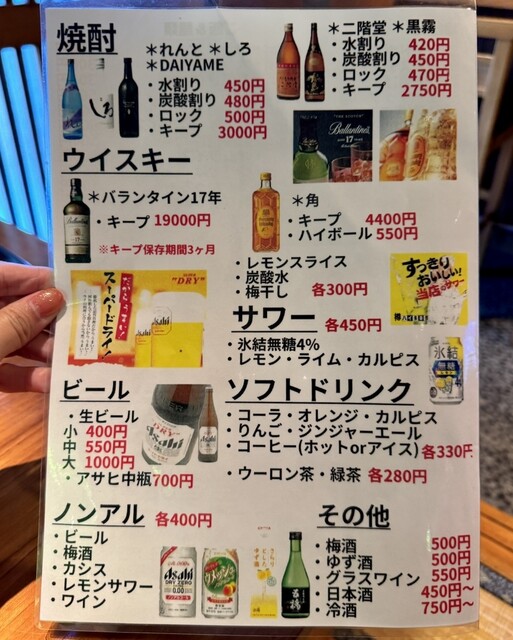 焼酎
＊れんと ＊しろ
＊DAIYAME
・水割り 450円
・炭酸割り 480円
・ロック 500円
・キープ 3000円
＊二階堂 ＊黒霧
・水割り 420円
・炭酸割り 450円
・ロック 470円
・キープ 2750円
Ballantine's
17
ウイスキー
＊バランタイン17年
・キープ 19000円
※キープ保存期間3ヶ月
＊角
・キープ 4400円
・ハイボール 550円
・レモンスライス
・炭酸水
・梅干し 各300円
すっきり
おいしい!
当店のサワー
"DRY"
だからうまい!
スーパードライ!
Asahi
サワー 各450円
・氷結無糖4%
・レモン・ライム・カルピス
氷結
無糖
ビール
・生ビール
小 400円
中 550円
大 1000円
・アサヒ中瓶700円
DRY
Asahi
ソフトドリンク
・コーラ・オレンジ・カルピス
・りんご・ジンジャーエール
・コーヒー(ホットorアイス) 各330円
・ウーロン茶・緑茶 各280円
ノンアル 各400円
・ビール
・梅酒
・カシス
・レモンサワー
・ワイン
Asahi
DRY ZERO
0.00
その他
・梅酒 500円
・ゆず酒 500円
・グラスワイン 550円
・日本酒 450円～
・冷酒 750円～